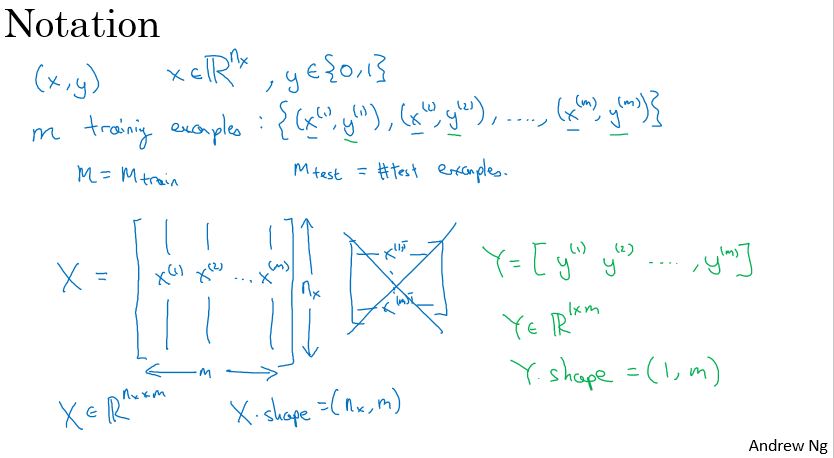 Notation
(x,y) x ∈ ℝ^{n_x}, y ∈ {0,1}
m training examples : {(x^{(1)}, y^{(1)}), (x^{(2)}, y^{(2)}), ...., (x^{(m)}, y^{(m)})}
M = M_{train} M_{test} = #test examples.
X = [x^{(1)} x^{(2)} ... x^{(m)}] n_x
m
x^{(1)T}
x^{(m)T}
Y = [y^{(1)} y^{(2)} ...., y^{(m)}]
Y ∈ ℝ^{1×m}
Y.shape = (1, m)
X ∈ ℝ^{n_x × m} X.shape = (n_x, m)
Andrew Ng